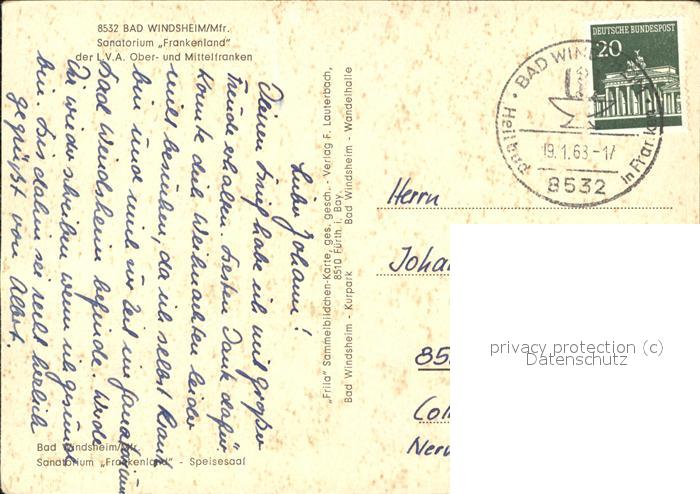 8532 BAD WINDSHEIM/Mfr.
Sanatorium „Frankenland"
der L.V.A. Ober- und Mittelfranken
Lieber Johann!
Deinen Brief habe ich mit großer
Freude erhalten. Besten Dank dafür.
Konnte dich Weihnachten leider
nicht besuchen, da ich selbst krank
bin und mich zur Zeit im Sanatorium
Bad Windsheim befinde. Werde
Dir wieder schreiben wenn ich gesund
bin. Bis dahin sei recht herzlich
gegrüßt von Albert.
Bad Windsheim/Mfr.
Sanatorium „Frankenland" - Speisesaal
„Frila" Sammelbildchen-Karte, ges. gesch. - Verlag F. Lauterbach,
8510 Fürth i. Bay.
Bad Windsheim - Kurpark Bad Windsheim - Wandelhalle
DEUTSCHE BUNDESPOST
20
BAD WIN
Heilbad
in Franken
19.1.68-17
8532
Herrn
Joha
85
Col
Nerv
privacy protection (c)
Datenschutz